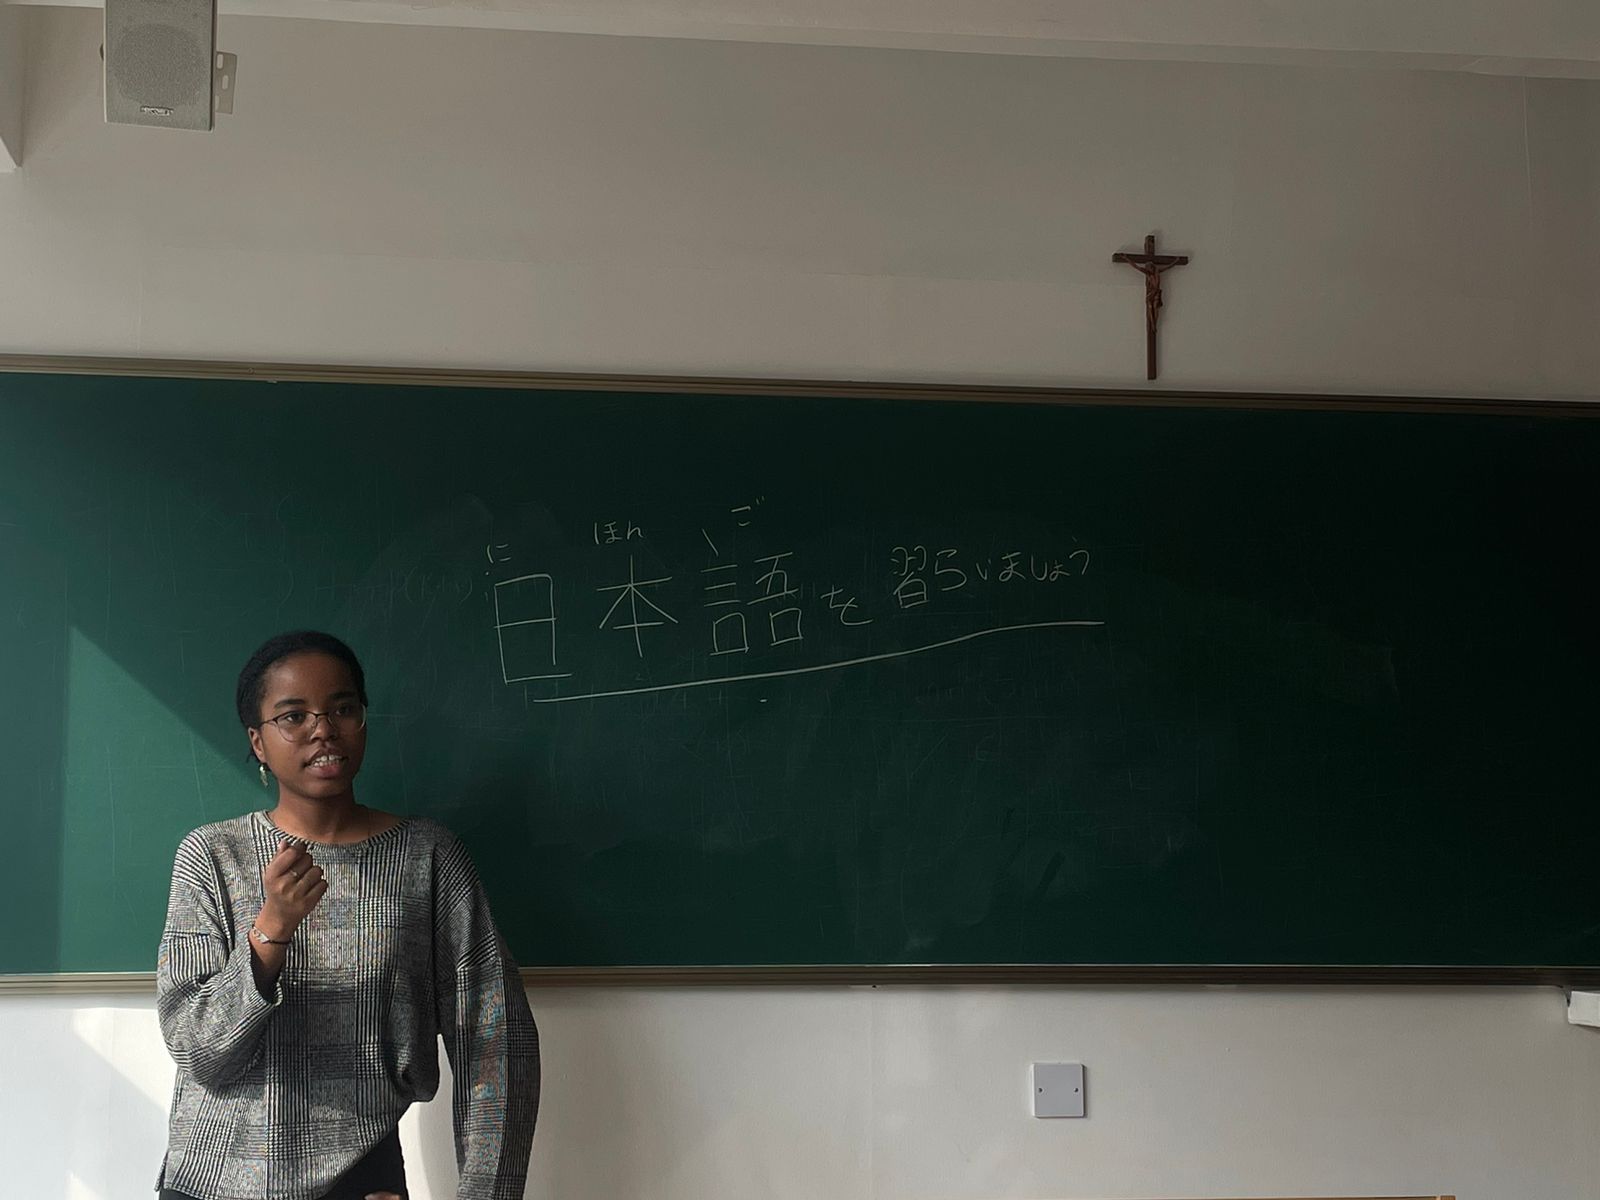 に ほん ご
日本語を習らいましょう